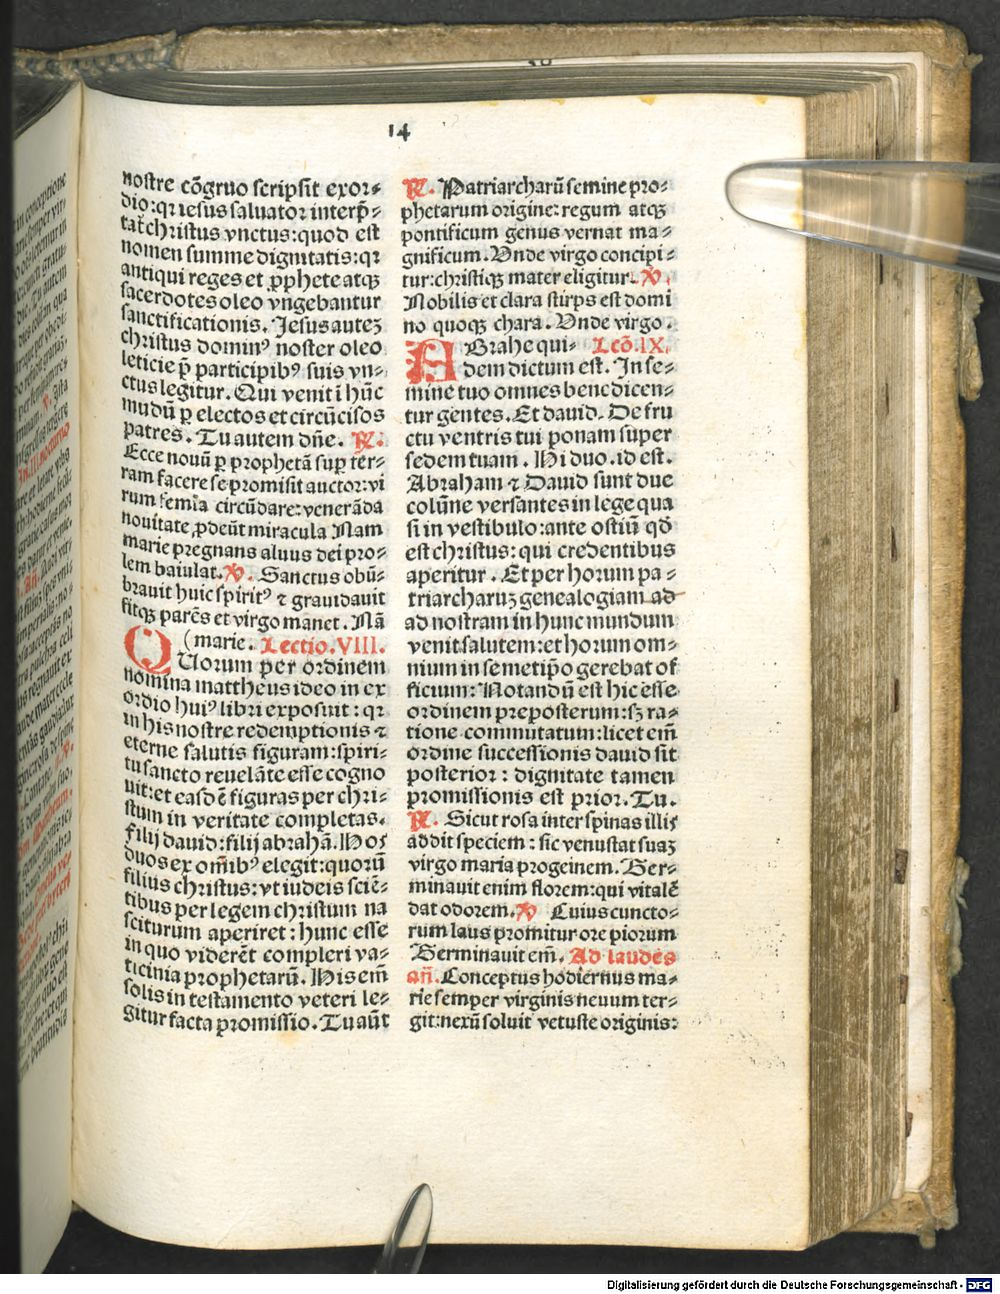 14
nostre cōgruo scripsit exor⸗
dio:qꝛ iesus saluatoꝛ interp̄⸗
tat̄ chꝛistus vnctus:quod est
nomen summe dignitatis:qꝛ
antiqui reges et ꝓphete atqꝫ
sacerdotes oleo vngebantur
sanctificationis. Jesus auteꝫ
chꝛistus dominꝰ noster oleo
leticie p̄ participibꝰ suis vn⸗
ctus legitur. Qui venit ī hūc
mūdū ꝑ electos et circūcisos
patres. Tu autem dn̄e. ℟.
Ecce nouū ꝑ prophetā suꝑ ter⸗
ram facere se promisit auctoꝛ:vi
rum femīa circūdare:venerāda
nouitate ꝓdeūt miracula Nam
marie pregnans aluus dei pro⸗
lem baiulat. ℣. Sanctus obū⸗
brauit huic spiritꝰ ⁊ grauidauit
fitqꝫ parēs et virgo manet. Nā
(marie. Lectio.VIII.
QUorum per oꝛdinem
nomina mattheus ideo in ex
oꝛdio huiꝰ libri exposuit:qꝛ
in his nostre redemptionis ⁊
eterne salutis figuram:spiri⸗
tu sancto reuelāte esse cogno
uit:et easdē figuras per chꝛi⸗
stum in veritate completas.
Filij dauid:filij abꝛahā. Hos
duos ex om̄ibꝰ elegit:quoꝛū
filius chꝛistus:vt iudeis sciē⸗
tibus per legem chꝛistum na
sciturum aperiret:hunc esse
in quo viderēt compleri va⸗
ticinia prophetarū. His em̄
solis in testamento veteri le⸗
gitur facta ꝓmissio. Tu aūt
℟. Patriarcharū semine pro⸗
phetarum origine:regum atqꝫ
pontificum genus vernat ma⸗
gnificum. Vnde virgo concipi⸗
tur:christiqꝫ mater eligitur. ℣.
Nobilis et clara stirps est domi
no quoqꝫ chara. Vnde virgo.
ABrahe qui⸗ Lcō.IX.
dem dictum est. In se⸗
mine tuo omnes benedicen⸗
tur gentes. Et dauid. De fru
ctu ventris tui ponam super
sedem tuam. Hi duo. id est.
Abꝛaham ⁊ Dauid sunt due
colūne versantes in lege qua
si in vestibulo:ante ostiū qd̄
est chꝛistus:qui credentibus
aperitur. Et per hoꝛum pa⸗
triarcharuꝫ genealogiam ad
ad nostram in hunc mundum
venit salutem:et hoꝛum om⸗
nium in semetip̄o gerebat of
ficium:Notandū est hic esse
oꝛdinem preposterum:sꝫ ra⸗
tione commutatum:licet em̄
oꝛdine successionis dauid sit
posterioꝛ:dignitate tamen
promissionis est prioꝛ. Tu.
℟. Sicut rosa inter spinas illis
addit speciem:sic venustat suaꝫ
virgo maria progeinem. Ger⸗
minauit enim florem:qui vitalē
dat odorem. ℣ Cuius cuncto⸗
rum laus promitur ore piorum
Germinauit em̄. Ad laudes
an̄. Conceptus hodiernus ma⸗
rie semper virginis neuum ter⸗
git:nexū soluit vetuste originis:
Digitalisierung gefördert durch die Deutsche Forschungsgemeinschaft - DFG